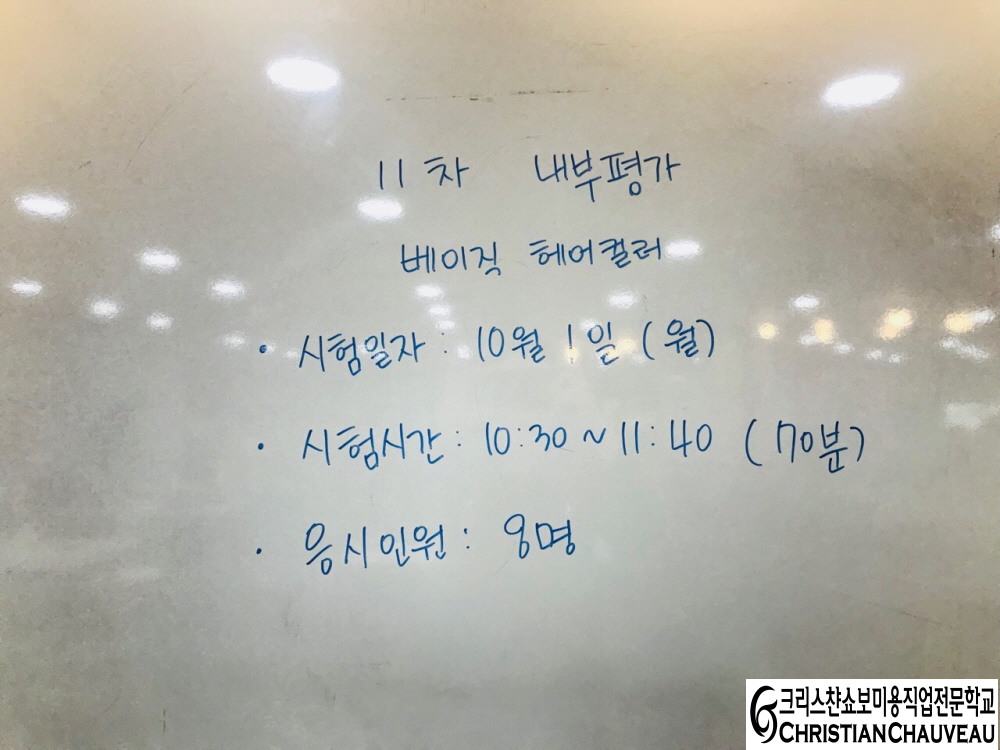 11차 내부평가
베이직 헤어컬러
• 시험일자 : 10월 1일 (월)
• 시험시간 : 10:30 ~ 11:40 (70분)
• 응시인원 : 8명
크리스챤쇼보미용직업전문학교
CHRISTIAN CHAUVEAU